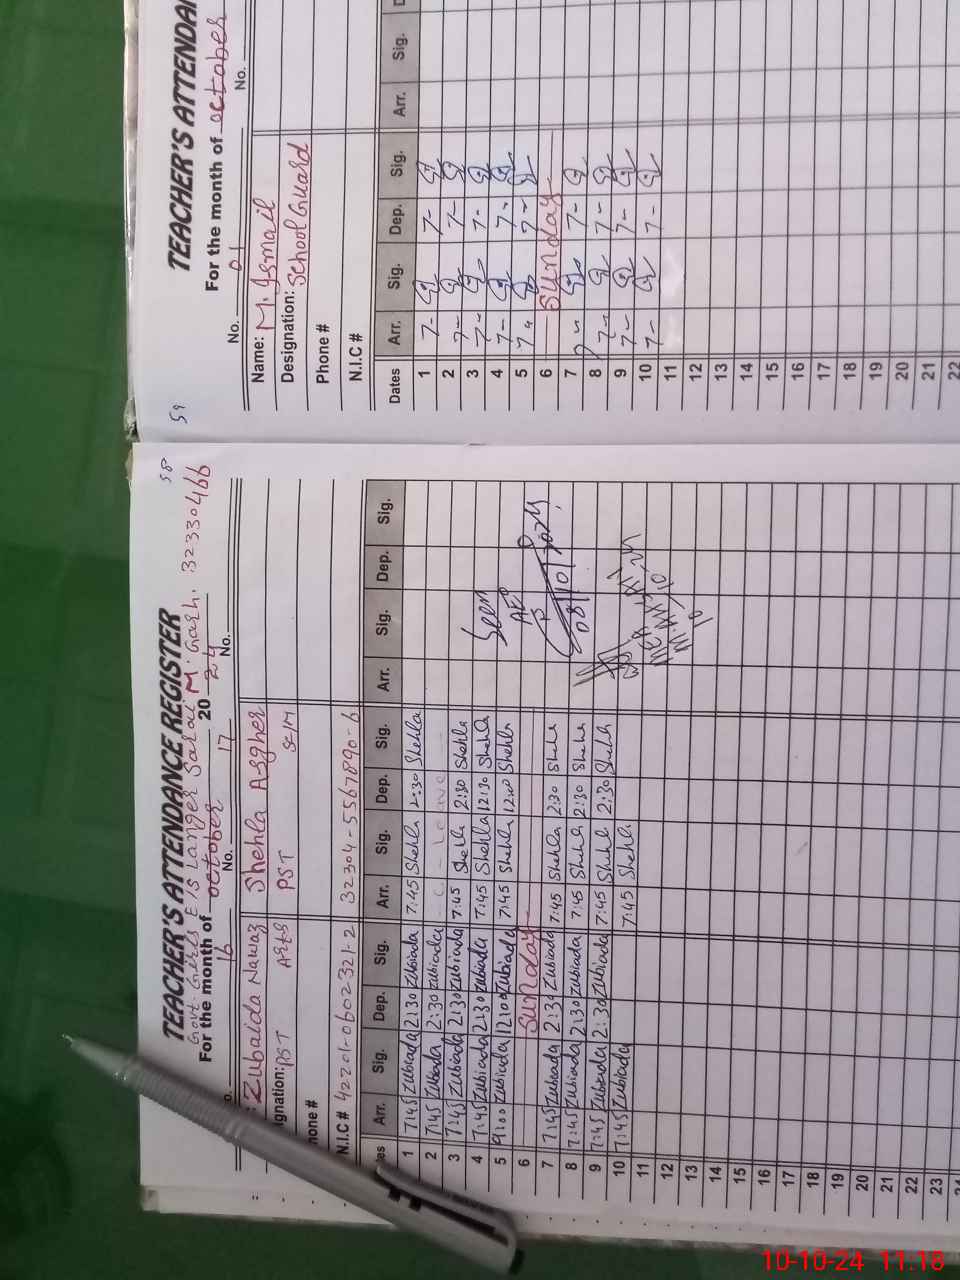 58
TEACHER'S ATTENDANCE REGISTER
Govt. Girls E/S Langer Sarai M. Garh. 32330466
For the month of october 20 24
16 No. 17 No.
Zubaida Nawaz Shehla Asgher
gnation: PST Arts PST SE/M
hone #
N.I.C # 42201-06002321-2 32304-5567890-6
tes Arr. Sig. Dep. Sig. Arr. Sig. Dep. Sig. Arr. Sig. Dep. Sig.
1 7:45 Zubiada 2:30 Zubiada 7:45 Shehla 2:30 Shehla
2 7:45 Zubiada 2:30 Zubiada
3 7:45 Zubiada 2:30 Zubiada 7:45 Shehla 2:30 Shehla
4 7:45 Zubiada 2:30 Zubiada 7:45 Shehla 12:30 Shehla
5 9:00 Zubiada 12:00 Zubiada 7:45 Shehla 12:00 Shehla
6 Sunday
7 7:45 Zubiada 2:30 Zubiada 7:45 Shehla 2:30 Shehla
8 7:45 Zubiada 2:30 Zubiada 7:45 Shehla 2:30 Shehla
9 7:45 Zubiada 2:30 Zubiada 7:45 Shehla 2:30 Shehla
10 7:45 Zubiada 7:45 Shehla
11
12
13
14
15
16
17
18
19
20
21
22
23
24
Seen
08/10/2024
59
TEACHER'S ATTENDA
For the month of october
No. 01 No.
Name: M. Ismail
Designation: School Guard
Phone #
N.I.C #
Dates Arr. Sig. Dep. Sig. Arr. Sig. D
1 7- 7-
2 7- 7-
3 7- 7-
4 7- 7-
5 7- 7-
6 Sunday
7 7- 7-
8 7- 7-
9 7- 7-
10 7- 7-
11
12
13
14
15
16
17
18
19
20
21
22
10-10-24 11:18